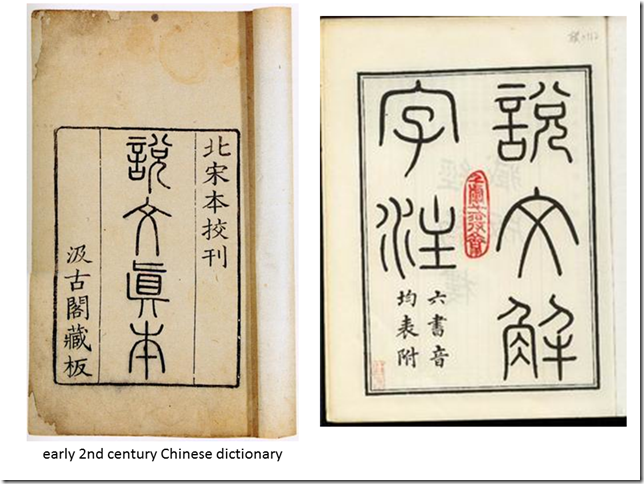 北宋本挍刊
說文眞本
汲古閣藏板
說文解
字注
六書音
均表附
early 2nd century Chinese dictionary